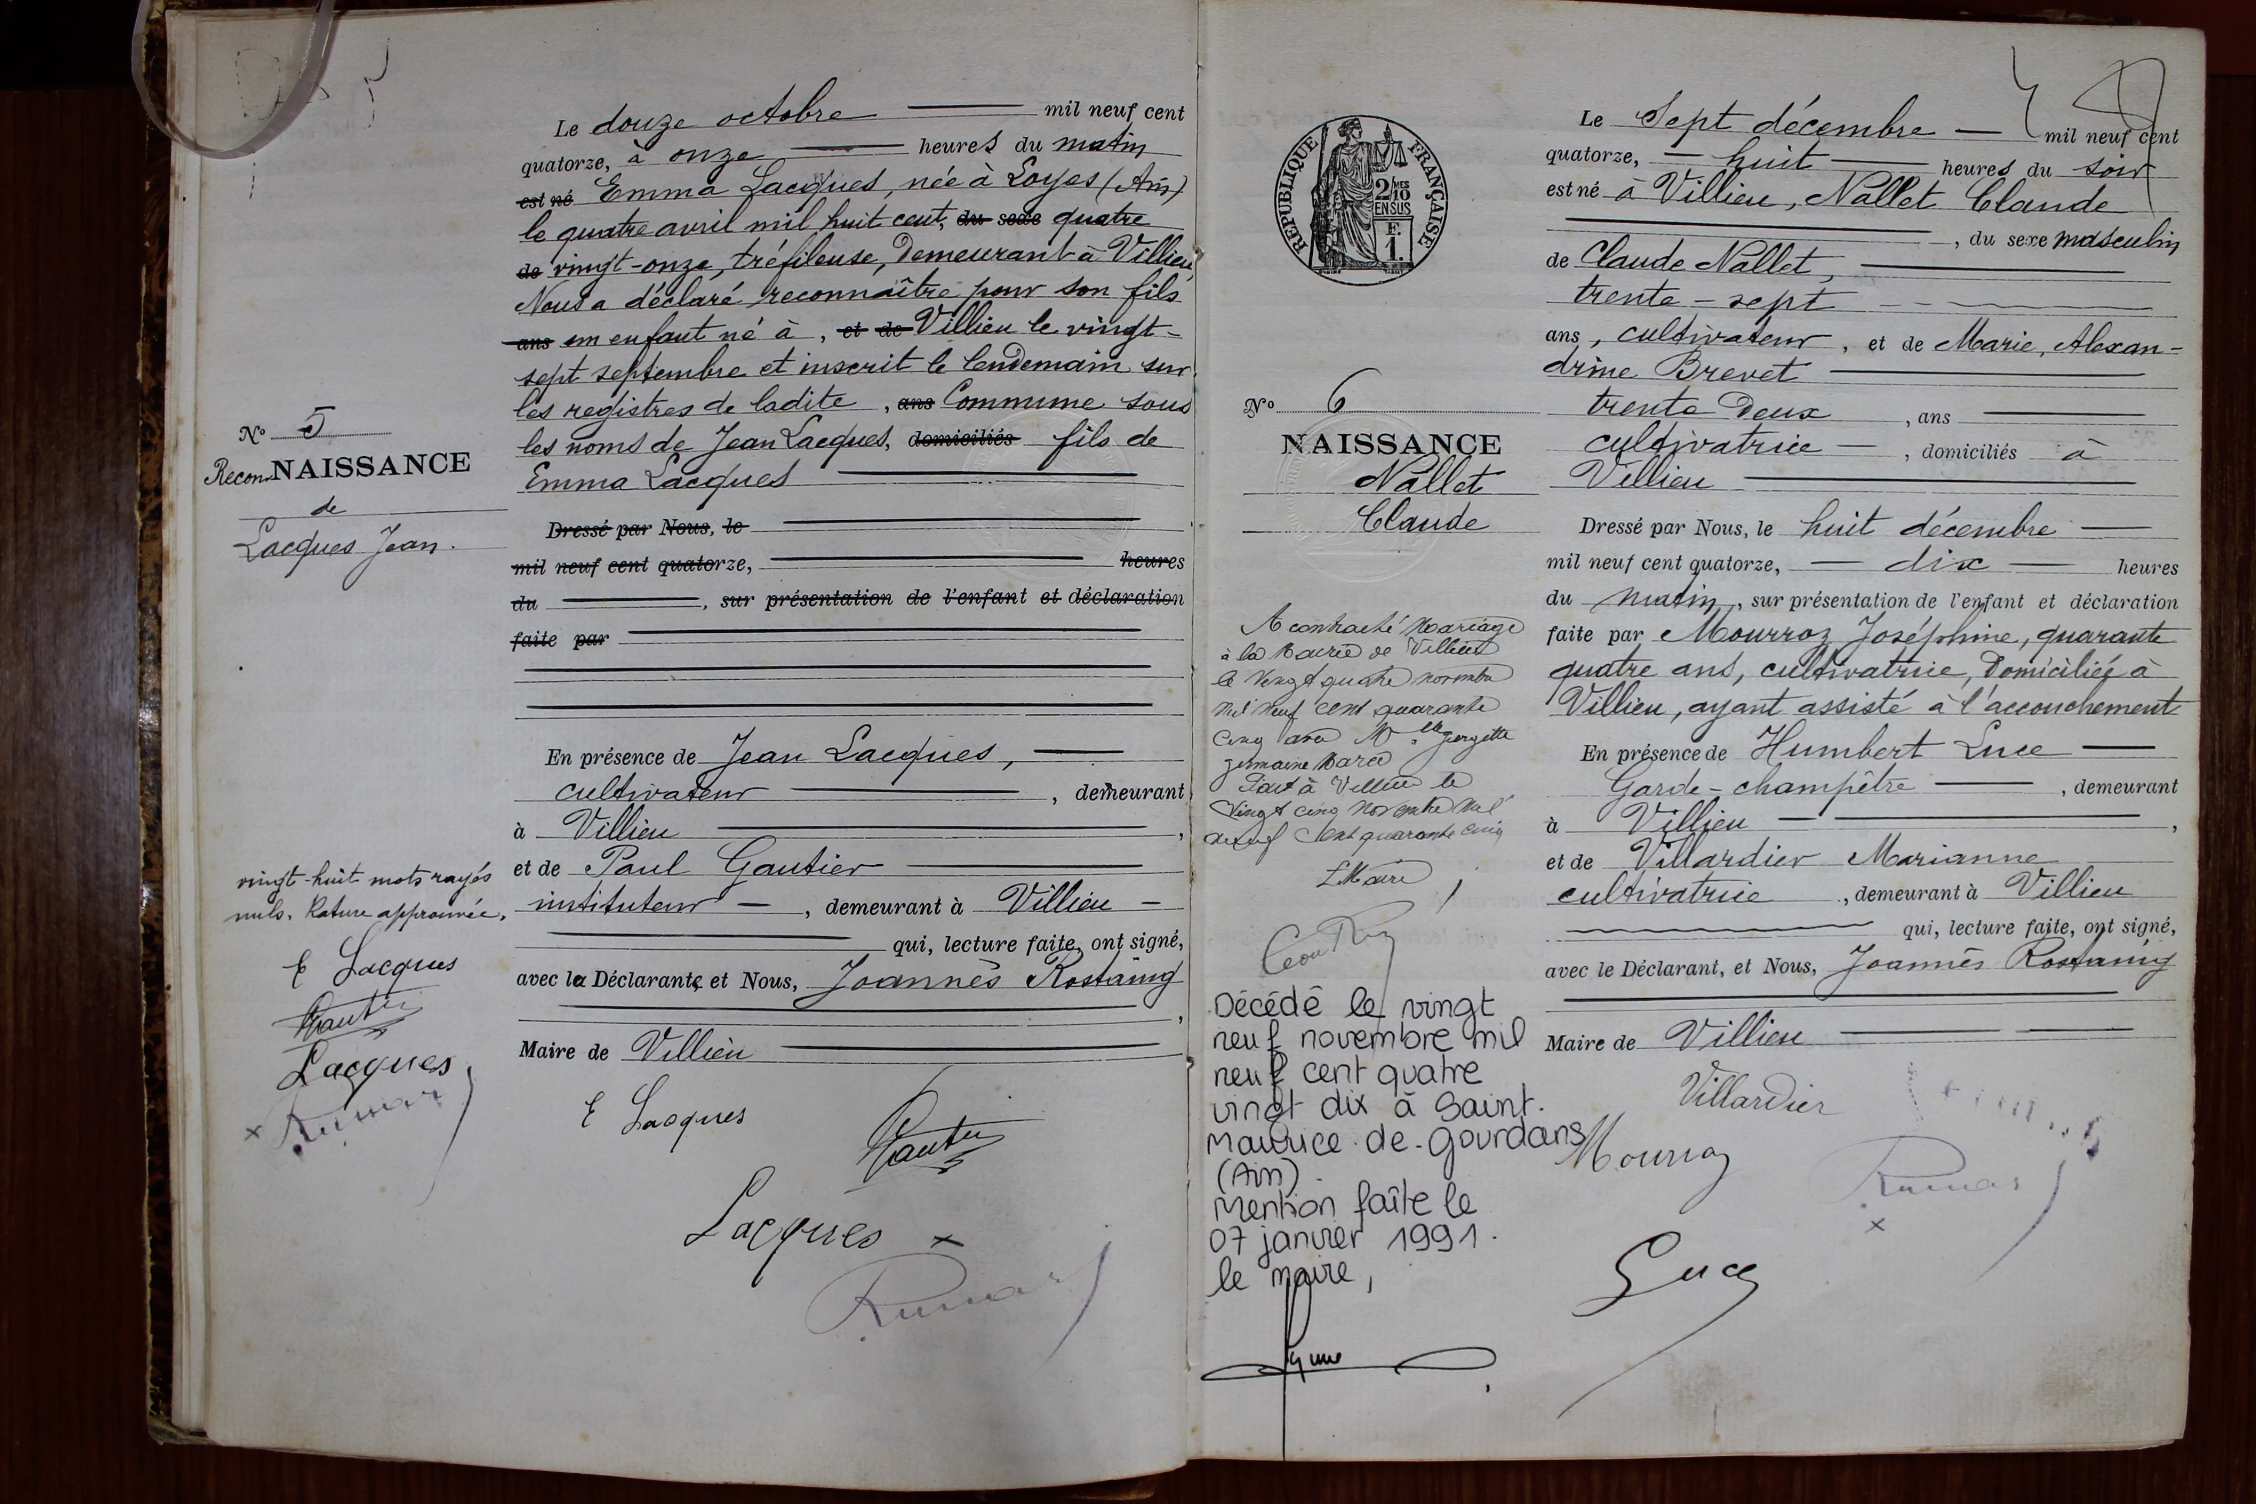 Le douze octobre mil neuf cent
quatorze, à onze heures du matin
est né Emma Lacques, née à Loyes (Ain)
le quatre avril mil huit cent, du sexe quatre
de vingt-onze, tréfileuse, Demeurant à Villieu,
Nous a déclaré reconnaître pour son fils
ans un enfant né à , et de Villieu le vingt-
sept septembre et inscrit le lendemain sur
les registres de ladite , ans Commune sous
les noms de Jean Lacques, domiciliés fils de
Emma Lacques
Dressé par Nous, le
mil neuf cent quatorze, heures
du , sur présentation de l'enfant et déclaration
faite par
En présence de Jean Lacques,
cultivateur , demeurant
à Villieu ,
et de Paul Gautier
instituteur , demeurant à Villieu
qui, lecture faite, ont signé,
avec la Déclarante et Nous, Joannès Rostaing
,
Maire de Villieu
E Lacques
Gautier
Lacques
No 5
Recon NAISSANCE
de
Lacques Jean.
vingt-huit mots rayés
nuls. Rature approuvée.
E Lacques
Gautier
Lacques
RÉPUBLIQUE FRANÇAISE
2/10 MES
EN SUS
E.
1.
No 6
NAISSANCE
Nallet
Claude
A contracté Mariage
à la Mairie de Villieu
le Vingt quatre novembre
mil neuf cent quarante
cinq avec Mlle Georgette
Germaine
Fait à Villieu le
Vingt cinq novembre mil
neuf cent quarante cinq
L Maire
Décédé le vingt
neuf novembre mil
neuf cent quatre
vingt dix à Saint.
Maurice-de-Gourdans
(Ain).
Mention faîte le
07 janvier 1991.
le maire,
Le Sept décembre mil neuf cent
quatorze, huit heures du soir
est né à Villieu, Nallet Claude
, du sexe masculin
de Claude Nallet,
trente-sept
ans, cultivateur, et de Marie, Alexan-
drine Brevet
trente Deux , ans
cultivatrice , domiciliés à
Villieu
Dressé par Nous, le huit décembre
mil neuf cent quatorze, dix heures
du matin, sur présentation de l'enfant et déclaration
faite par Mourroz Joséphine, quarante
quatre ans, cultivatrice, Domiciliée à
Villieu, ayant assisté à l'accouchement
En présence de Humbert Luce
Garde-champêtre , demeurant
à Villieu ,
et de Villardier Marianne
cultivatrice , demeurant à Villieu
qui, lecture faite, ont signé,
avec le Déclarant, et Nous, Joannès Rostaing
Maire de Villieu
Villardier
Mourroz
Luce